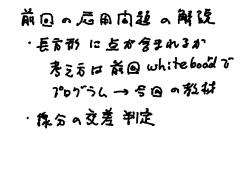 前回の応用問題の解説
・長方形に点が含まれるか
考え方は前回whiteboadで
プログラム→今回の教材
・線分の交差判定